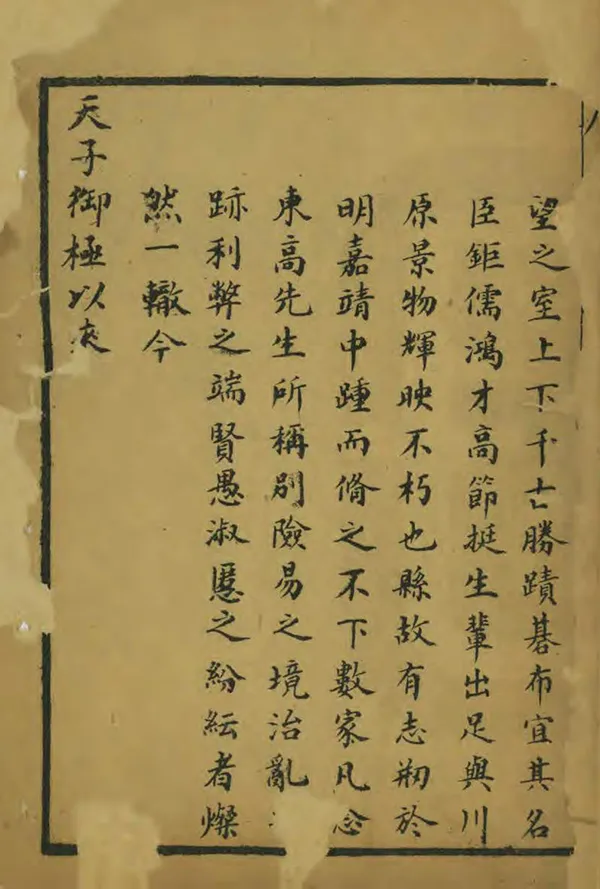 望之室上下千亡勝蹟碁布宜其名
臣鉅儒鴻才高節挺生輩出足與川
原景物輝映不朽也縣故有志剏於
明嘉靖中踵而脩之不下數家凡
東高先生所稱別險易之境治亂
跡利弊之端賢愚淑慝之紛紜者燦
然一轍今
天子御極以來